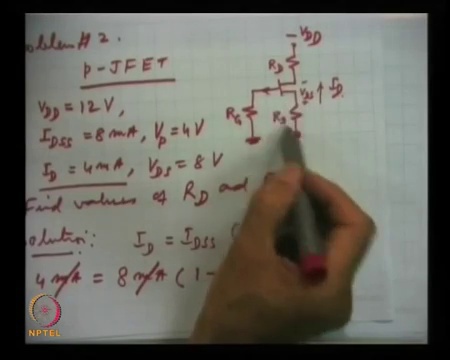 oblem # 2.
p-JFET
VDD = 12 V,
IDSS = 8 mA, Vp = 4 V
ID = 4 mA, VDS = 8 V
Find values of RD and
Solution: ID = IDSS (
4 mA = 8 mA ( 1 -
- VDD
RD
VDS
ID
RG
RS
NPTEL